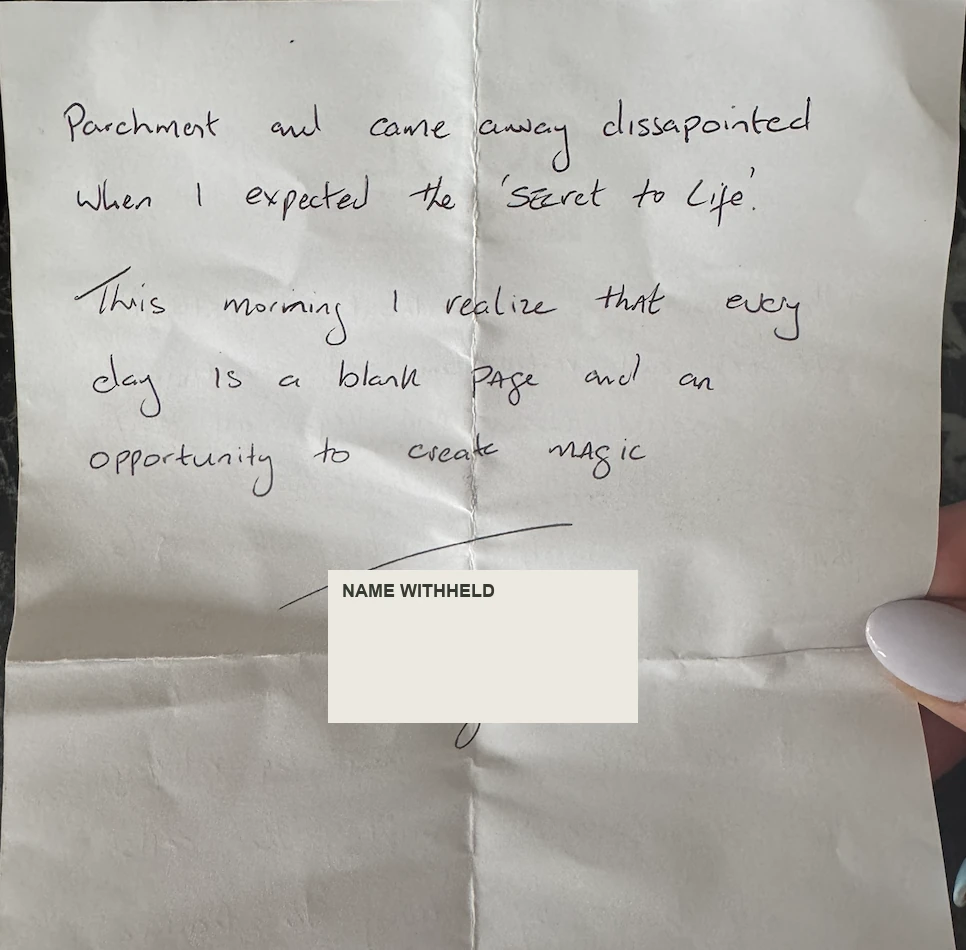 Parchment and came away dissapointed
when I expected the 'SEcret to Life'.
This morning I realize thAt every
day is a blank PAge and an
opportunity to create mAgic
NAME WITHHELD